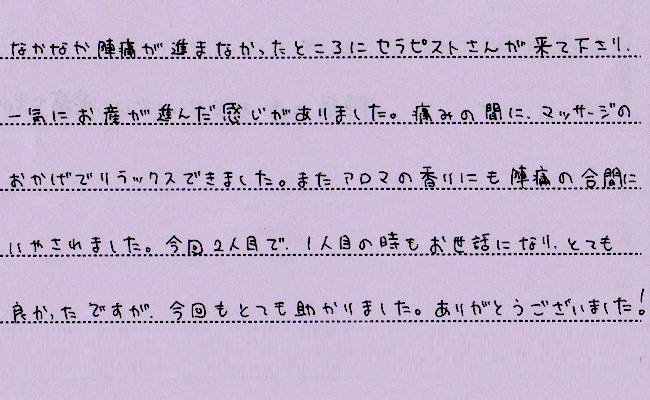 なかなか陣痛が進まなかったところにセラピストさんが来て下さり、
一気にお産が進んだ感じがありました。痛みの間に、マッサージの
おかげでリラックスできました。またアロマの香りにも陣痛の合間に
いやされました。今回2人目で、1人目の時もお世話になり、とても
良かったですが、今回もとても助かりました。ありがとうございました!